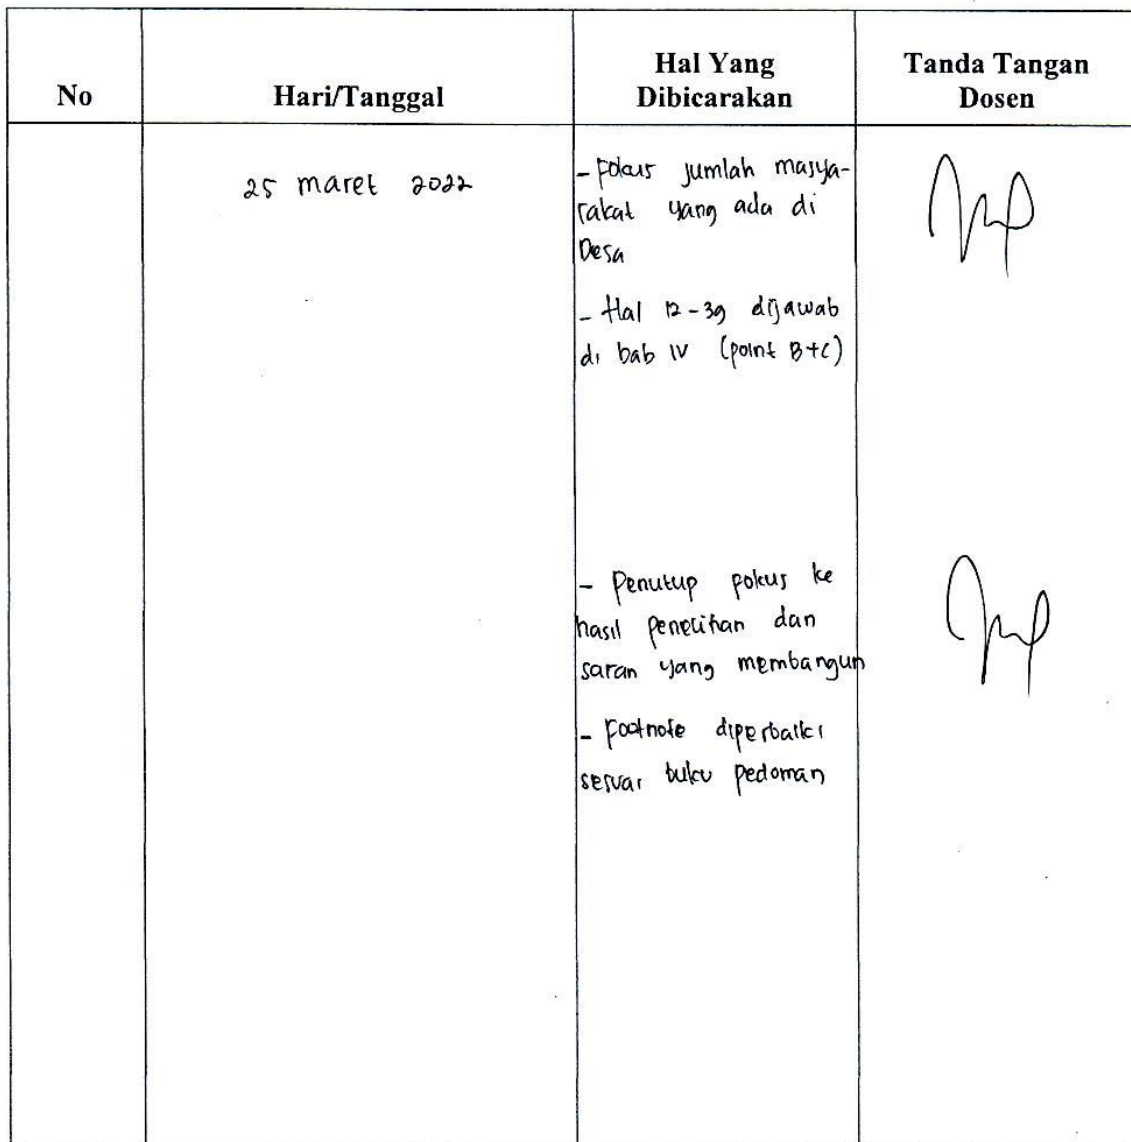 No
Hari/Tanggal
Hal Yang
Dibicarakan
Tanda Tangan
Dosen
25 maret 2022
- Fokus jumlah masya-
rakat yang ada di
Desa
- Hal 12-39 dijawab
di bab IV (point B+C)
- Penutup fokus ke
hasil penelitian dan
saran yang membangun
- Footnote diperbaiki
sesuai buku pedoman